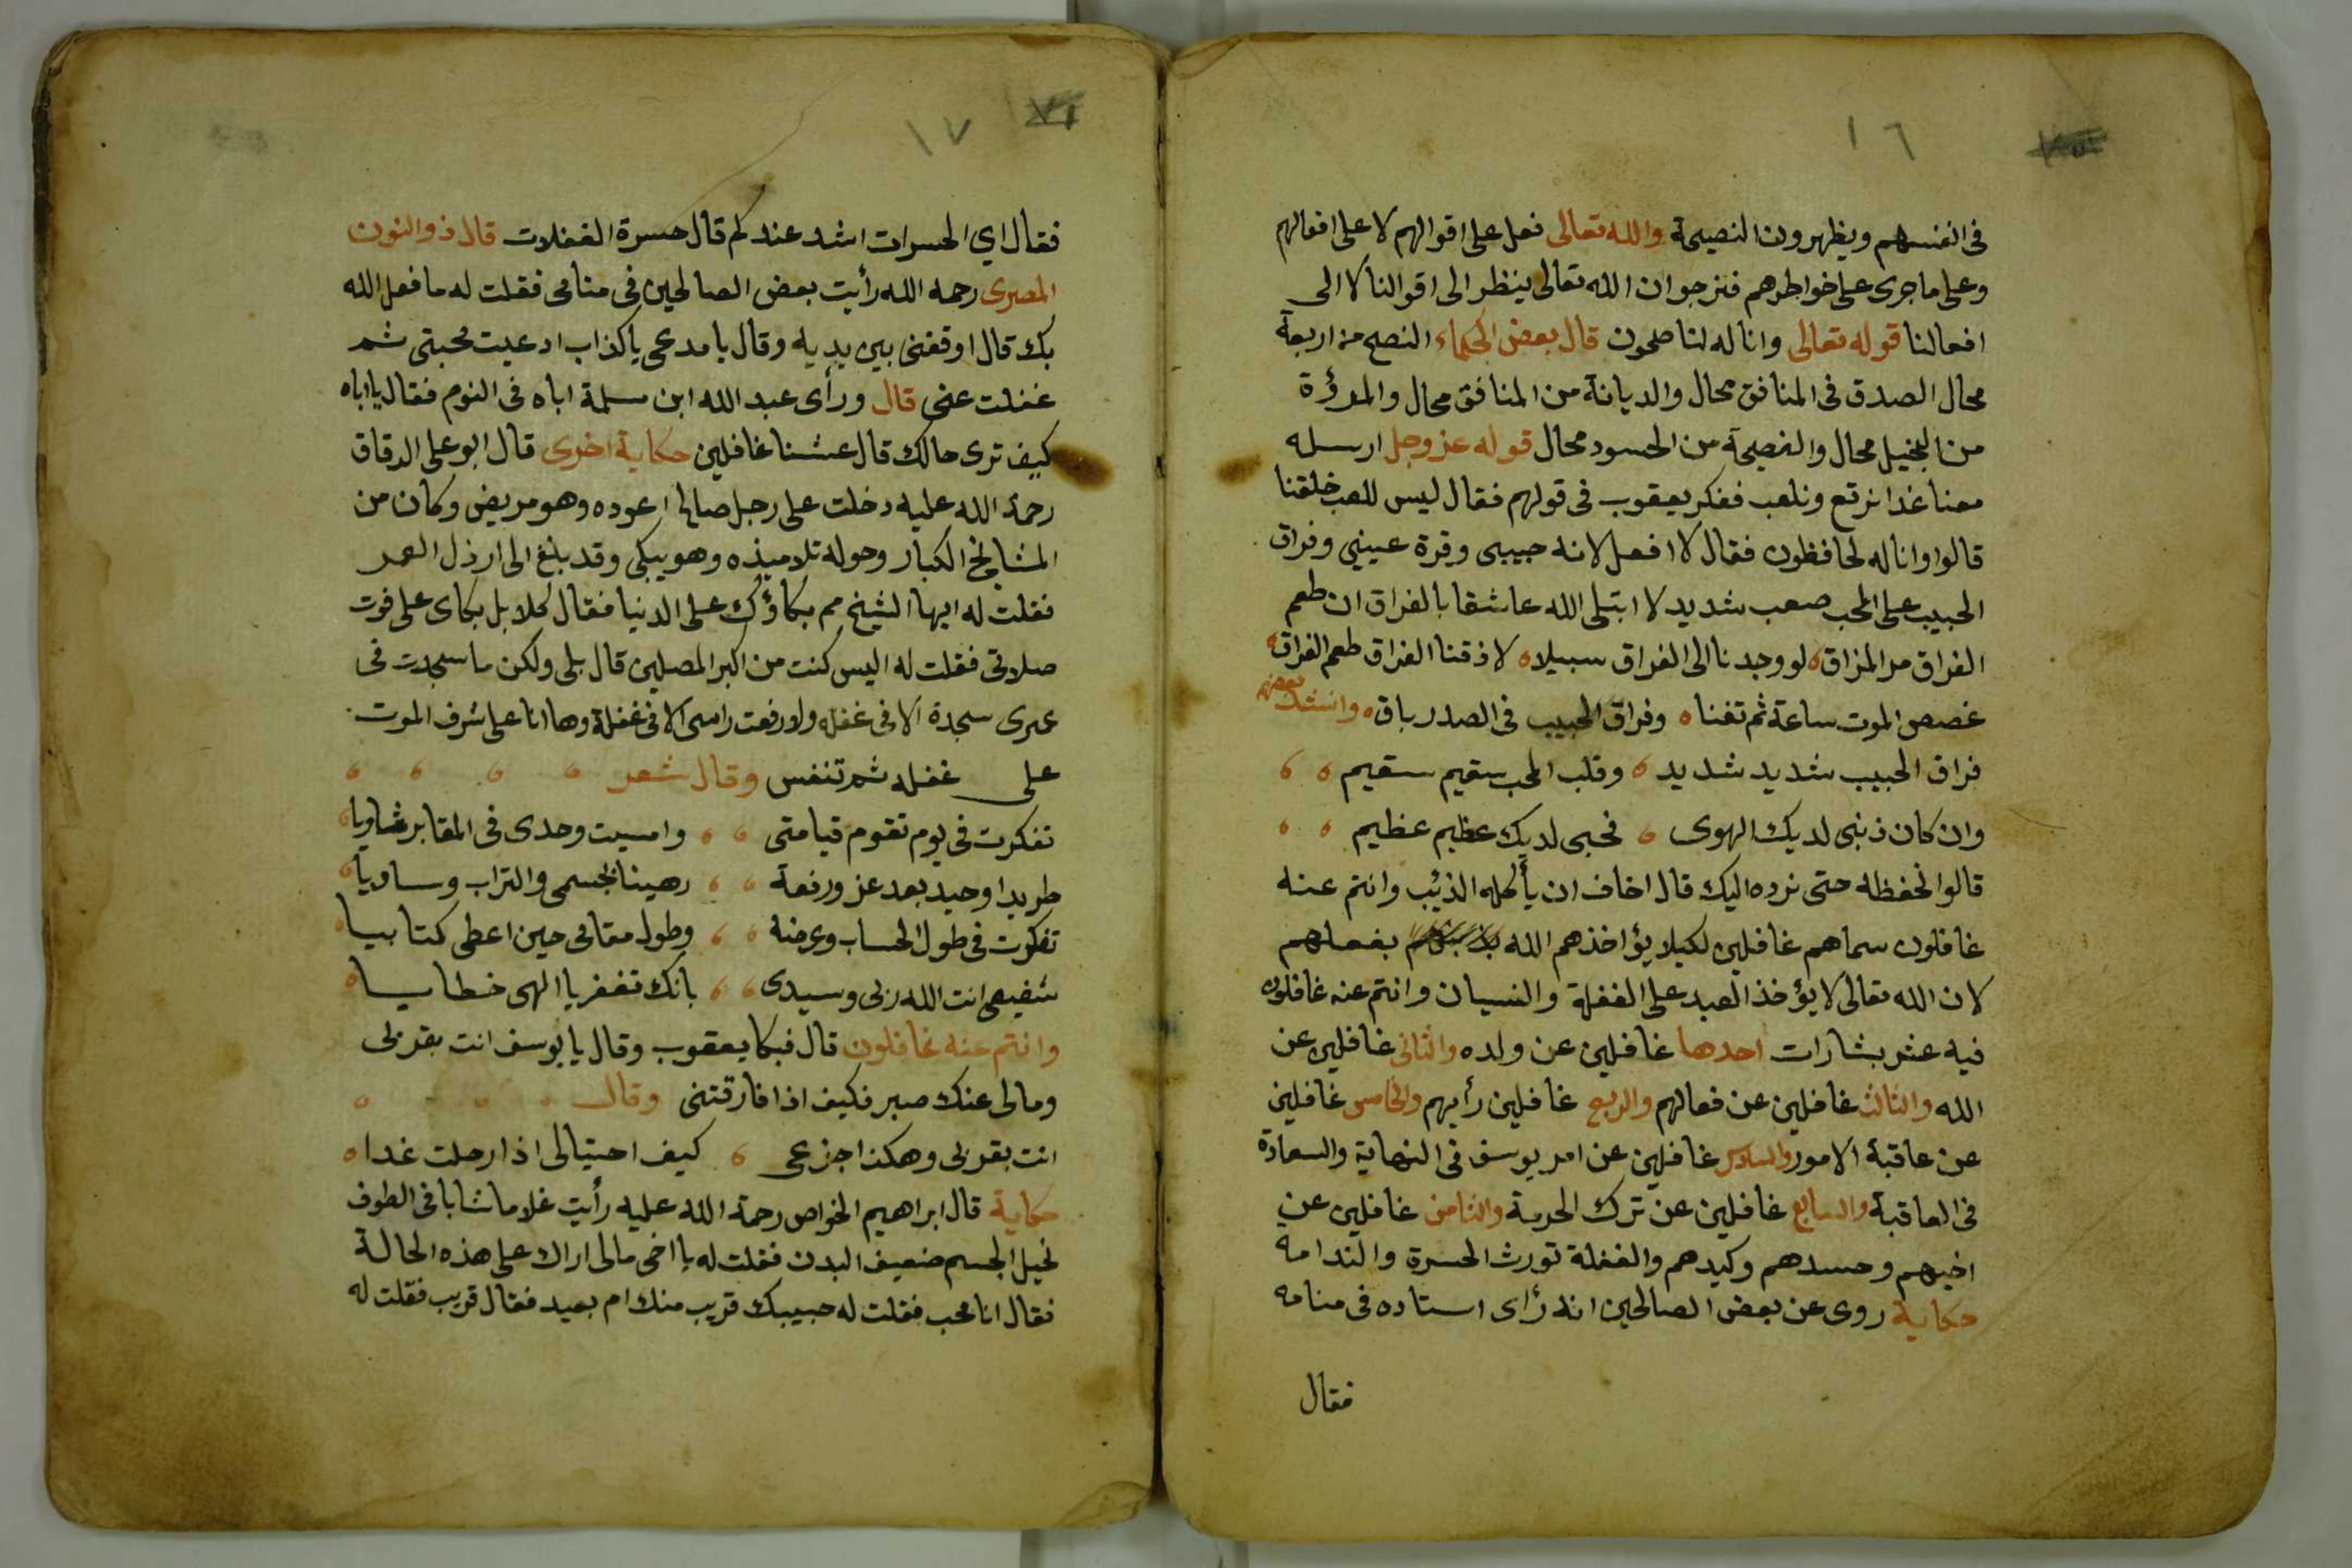 ١٦
في انفسهم ويظهرون النصيحة والله تعالى فعل على اقوالهم لا على افعالهم
وعلى ما جرى على خواطرهم فنرجوا ان الله تعالى ينظر الى اقوالنا لا الى
افعالنا قوله تعالى وانا له لناصحون قال بعض الحكماء النصح من اربعة
محال الصدق في المنافق محال والديانة من المنافق محال والمرؤة
من البخيل محال والنصيحة من الحسود محال قوله عز وجل ارسله
معنا غدا نرتع ونلعب ففكر يعقوب في قولهم فقال ليس للعب خلقنا
قالوا وانا له لحافظون فقال لا افعل لانه حبيبي وقرة عيني وفراق
الحبيب على المحب صعب شديد لا ابتلى الله عاشقا بالفراق ان طعم
الفراق مر المزاق ه لو وجدنا الى الفراق سبيلا ه لاذقنا الفراق طعم الفراق ه
غصص الموت ساعة ثم تفنا ه وفراق الحبيب في الصدر باق ه وانشد بعضهم
فراق الحبيب شديد شديد ه وقلب المحب سقيم سقيم ه ه
وان كان ذنبي لديك الهوى ه فحبي لديك عظيم عظيم ه ه
قالوا لحفظه حتى نرده اليك قال اخاف ان يأكله الذئب وانتم عنه
غافلون سماهم غافلين لكيلا يؤاخذهم الله بفعلهم
لان الله تعالى لا يؤخذ العبد على الغفلة والنسيان وانتم عنه غافلون
فيه عشر بشارات احدها غافلين عن ولده والثاني غافلين عن
الله والثالث غافلين عن فعالهم والربع غافلين رأيهم والخامس غافلين
عن عاقبة الامور والسادس غافلين عن امر يوسف في النهاية والسعادة
في العاقبة والسابع غافلين عن ترك الحرمة والثامن غافلين عن
اخيهم وحسدهم وكيدهم والغفلة تورث الحسرة والندامه
حكاية روى عن بعض الصالحين انه رأى استاده في منامه
فقال
١٧
فقال اي الحسرات اشد عندكم قال حسرة الغفلات قال ذوالنون
المصرى رحمه الله رأيت بعض الصالحين في منامي فقلت له ما فعل الله
بك قال اوقفني بين يديه وقال يا مدعي يا كذاب ادعيت محبتي ثم
غفلت عني قال ورأى عبد الله ابن مسلمة اباه في النوم فقال يا اباه
كيف ترى حالك قال عشنا غافلين حكاية اخرى قال ابو على الدقاق
رحمة الله عليه دخلت على رجل صالح اعوده وهو مريض وكان من
المشايخ الكبار وحوله تلاميذه وهو يبكي وقد بلغ الى ارذل العمر
فقلت له ايها الشيخ مم بكاؤك على الدنيا فقال كلا بل بكاى على فوت
صلاتي فقلت له اليس كنت من اكبر المصلين قال بلى ولكن ما سجدت في
عمرى سجدة الا في غفله ولا رفعت راسي الا في غفلة وها انا على شرف الموت
على غفله ثم تنفس وقال شعر ه ه ه ه
تفكرت في يوم تقوم قيامتي ه ه وامسيت وحدى في المقابر ثاويا ه
طريدا وحيد بعد عز ورفعة ه ه رهينا بجسمي والتراب وساديا ه
تفكرت في طول الحساب وعرضه ه ه وطول مقامي حين اعطى كتابيا ه
شفيعي انت الله ربي وسيدى ه ه بانك تغفر يا الهى خطايا ه
وانتم عنه غافلون قال فبكا يعقوب وقال يا يوسف انت بقربى
ومالى عنك صبر فكيف اذا فارقتني وقال ه ه ه
انت بقربى وهكذا جزعي ه كيف احتيالى اذا رحلت غدا ه
حكاية قال ابراهيم الخواص رحمة الله عليه رأيت غلاما شابا في الطوف
نحيل الجسم ضعيف البدن فقلت له يا اخى مالى اراك على هذه الحالة
فقال انا محب فقلت له حبيبك قريب منك ام بعيد فقال قريب فقلت له